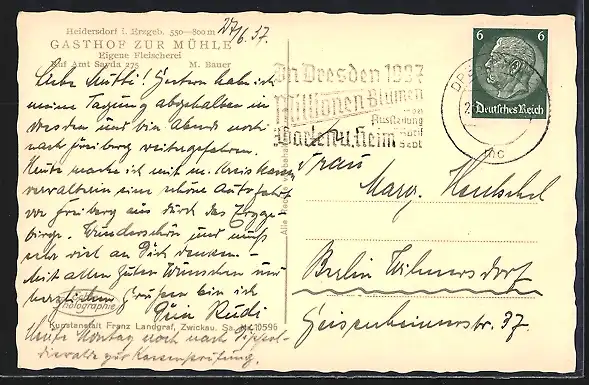 Heidersdorf i. Erzgeb. 550—800 m
GASTHOF ZUR MÜHLE
Eigene Fleischerei
Ruf Amt Sayda 275 M. Bauer
27/6.37.
Liebe Mutti! Gestern habe ich
meine Tagung abgehalten in
Dresden und bin Abends noch
nach Freiberg weitergefahren.
Heute mache ich mit m. Kreiskassen
verwaltern eine schöne Autofahrt
von Freiberg aus durch das Erzge-
birge. Wunderschön und muß
sehr viel an Dich denken –
Mit allen guten Wünschen und
herzlichen Grüßen bin ich
Dein Rudi
Heute Montag noch nach Dippol-
diswalde zur Kassenprüfung.
photographie
Kunstanstalt Franz Landgraf, Zwickau, Sa. Nr. 10596
In Dresden 1937
Millionen Blumen
Ausstellung
Garten u. Heim April
Sept
6 6
Deutsches Reich
DRE
Frau
Marg. Hentschel
Berlin Wilmersdorf
Geisenheimerstr. 37.